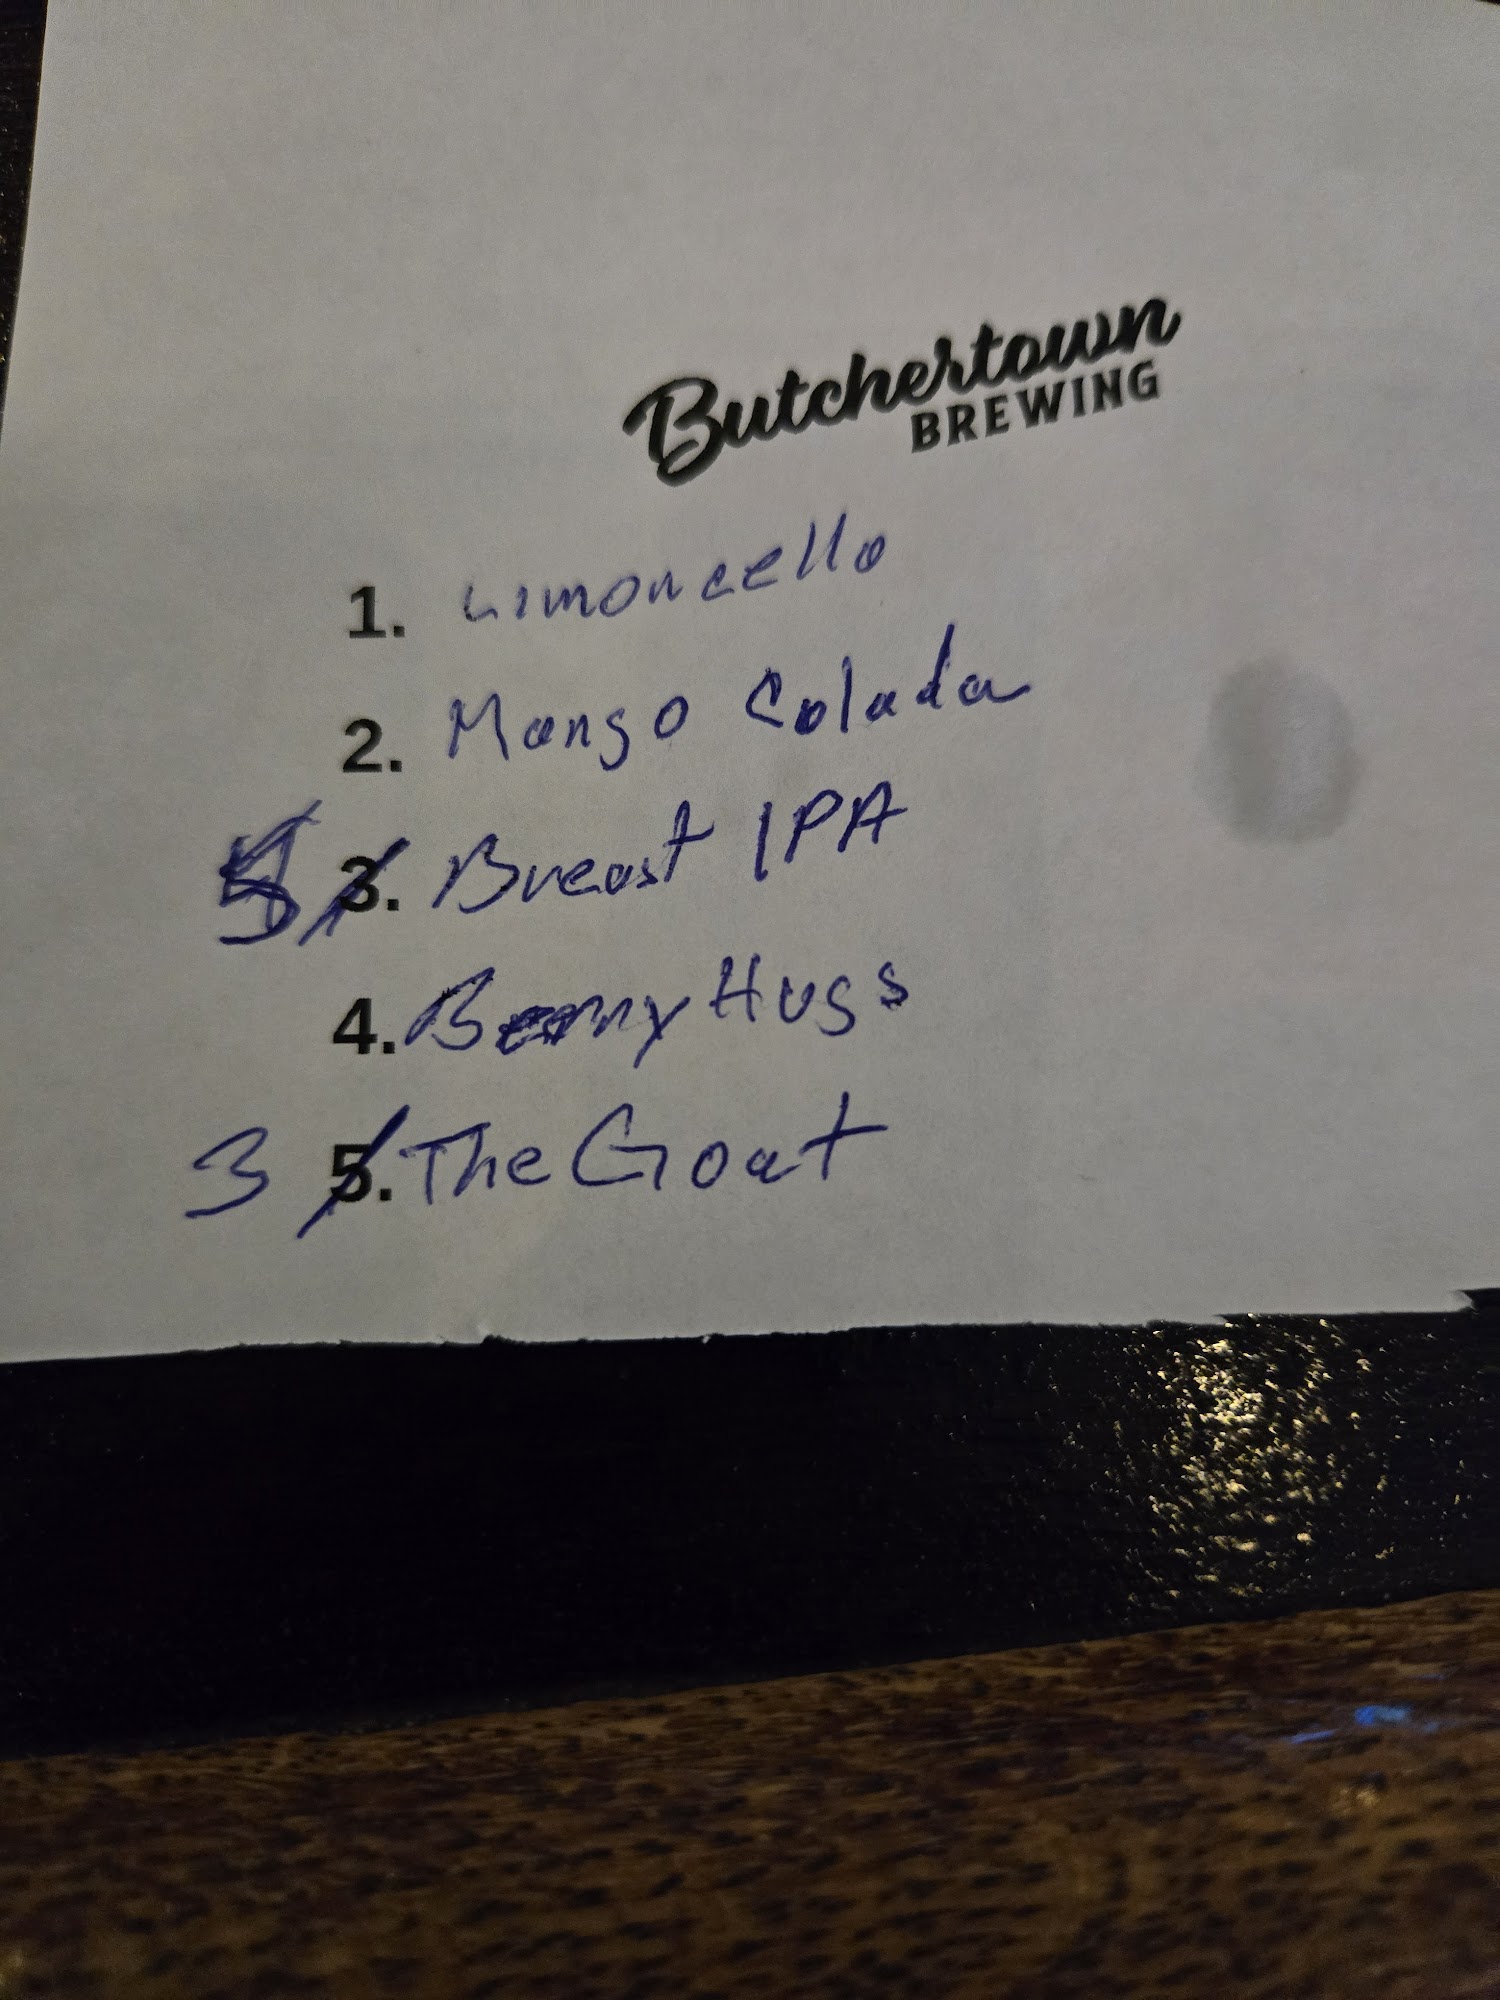 Butchertown
BREWING
1. Limoncello
2. Mango Colada
5 3. Breast IPA
4. Benny Hugs
3 5. The Goat